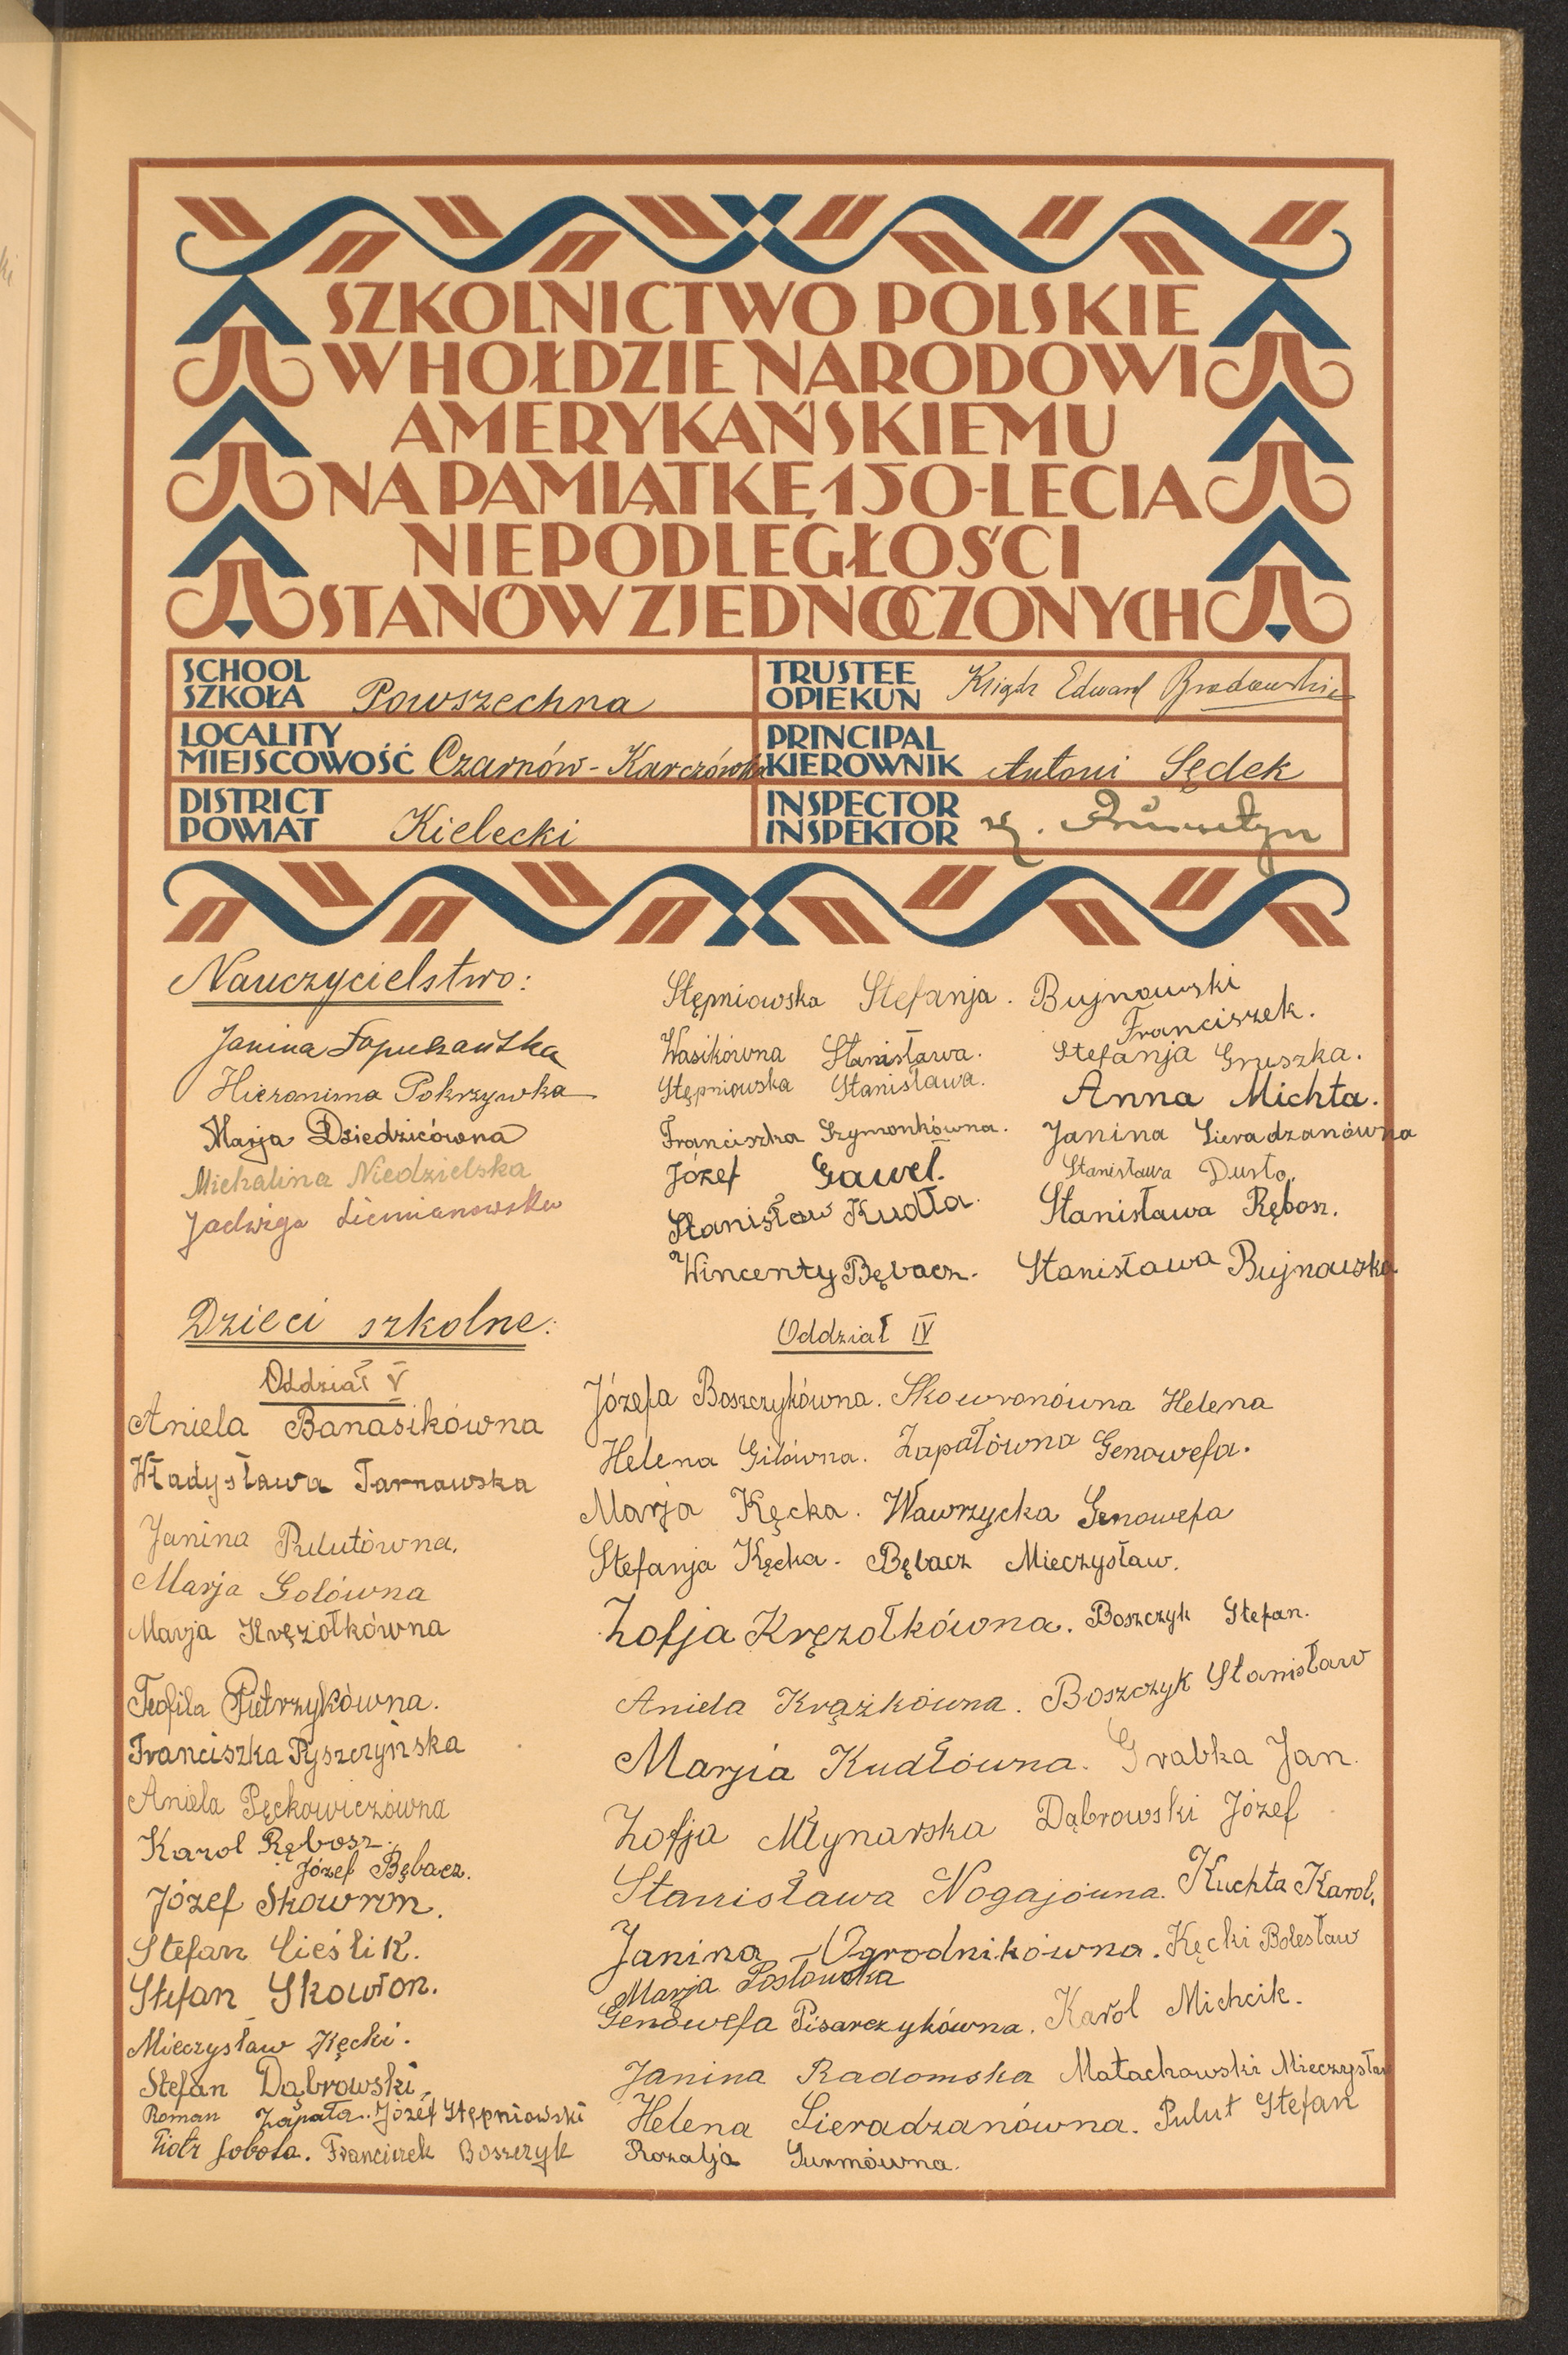 SZKOLNICTWO POLSKIE
W HOŁDZIE NARODOWI
AMERYKAŃSKIEMU
NA PAMIĄTKĘ 150-LECIA
NIEPODLEGŁOŚCI
STANÓW ZJEDNOCZONYCH
SCHOOL
SZKOŁA Powszechna
TRUSTEE
OPIEKUN Ksiądz Edward
LOCALITY
MIEJSCOWOŚĆ Czarnów-Karczówka
PRINCIPAL
KIEROWNIK Antoni Sędek
DISTRICT
POWIAT Kielecki
INSPECTOR
INSPEKTOR
Nauczycielstwo:
Janina Łapuszańska
Hieronima Pokrzywka
Marja Dziedzicówna
Michalina Niedzielska
Jadwiga Siemianowska
Stępniowska Stefanja.
Wasikówna Stanisława.
Stępniowska Stanisława.
Franciszka Szymonkówna.
Józef Gaweł.
Stanisław Kudła.
Wincenty Bębacz.
Bujnowski
Franciszek.
Stefanja Gruszka.
Anna Michta.
Janina Sieradzanówna
Stanisława Dusło.
Stanisława Rębosz.
Stanisława Bujnowska
Dzieci szkolne:
Oddział V
Aniela Banasikówna
Władysława Tarnowska
Janina Pulutówna.
Marja Gołówna
Marja Kręzołkówna
Teofila Pietrzykówna.
Franciszka Pyszczyńska
Aniela Pęckowiczówna
Karol Rębosz.
Józef Bębacz.
Józef Skowron.
Stefan Cieślik.
Stefan Skowron.
Mieczysław Kęcki.
Stefan Dąbrowski.
Roman Zapała. Józef Stępniowski
Piotr Sobota. Franciszek Boszczyk
Oddział IV
Józefa Boszczykówna. Skowronówna Helena
Helena Gilówna. Zapałówna Genowefa.
Marja Kęcka. Wawrzycka Genowefa
Stefanja Kęcka. Bębacz Mieczysław.
Zofja Kręzołkówna. Boszczyk Stefan.
Aniela Krążkówna. Boszczyk Stanisław
Marjia Kudłówna. Grabka Jan.
Zofja Młynarska Dąbrowski Józef
Stanisława Nogajówna. Kuchta Karol.
Janina Ogrodnikówna. Kęcki Bolesław
Marja Posłowska
Genowefa Pisarczykówna. Karol Michcik.
Janina Radomska Małachowski Mieczysław
Helena Sieradzanówna. Pulut Stefan
Rozalja Surmówna.